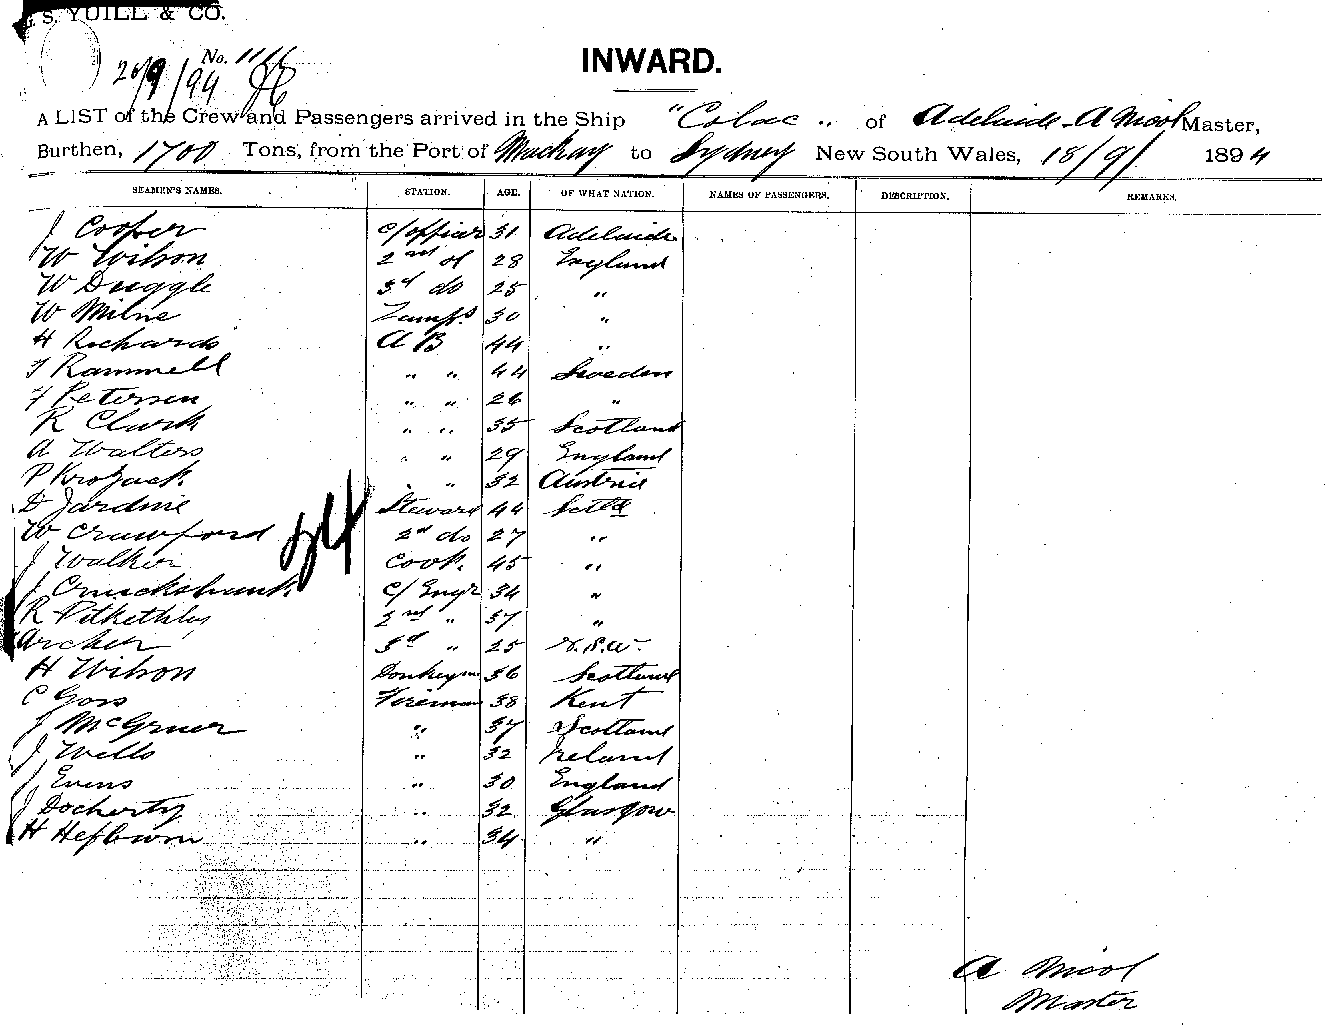 G. S. YUILL & CO.
No. 1116
20/9/94
INWARD.
A LIST of the Crew and Passengers arrived in the Ship "Colac" of Adelaide - A Nicol Master,
Burthen, 1700 Tons, from the Port of Mackay to Sydney New South Wales, 18/9/ 1894
SEAMEN'S NAMES. STATION. AGE. OF WHAT NATION. NAMES OF PASSENGERS. DESCRIPTION. REMARKS.
J Cooper c/officer 31 Adelaide
W Wilson 2nd of 28 England
W Duggle 3rd do 25 "
W Milne Lamps 30 "
H Richards A B 44 "
F Rammell " " 44 Sweden
F Petersen " " 26 "
R Clark " " 35 Scotland
A Walters " " 29 England
P Krozack " " 32 Austria
D Jardine Steward 44 Sctld
W Crawford 2nd do 27 "
J Walker Cook. 45 "
J Cruickshank c/ Engr 34 "
R Pitkethly 2nd " 37 "
Archer 3rd " 25 N.S.W.
H Wilson Donkeym 36 Scotland
C Goss Fireman 38 Kent
J McGruer " 37 Scotland
J Wills " 32 Ireland
J Evens " 30 England
J Docherty " 32 Glasgow
H Hepburn " 34 "
24
A Nicol
Master